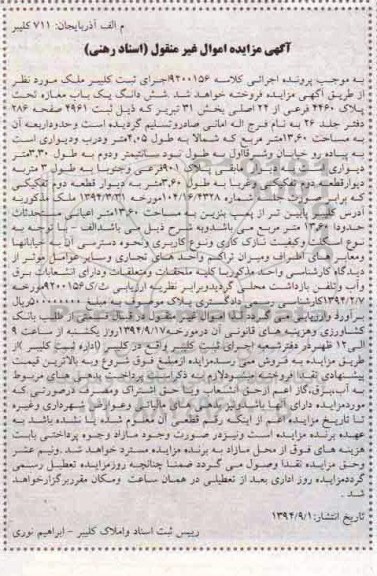 م الف آذربایجان: ۷۱۱ کلیبر
آگهی مزایده اموال غیر منقول (اسناد رهنی)
به موجب پرونده اجرائی کلاسه ۹۲۰۰۱۵۶اجرای ثبت کلیبر ملک مورد نظر
از طریق آگهی مزایده فروخته خواهد شد. شش دانگ یک باب مغازه تحت
پلاک ۴۴۶۰ فرعی از ۲۲ اصلی بخش ۳۱ تبریز که ذیل ثبت ۴۹۶۱ صفحه ۲۸۶
دفتر جلد ۲۶ به نام فرج اله امانی صادروتسلیم گردیده است وحدوداربعه آن
به مساحت ۱۳,۶۰متر مربع که شمالا به طول ۴,۰۵متر ودرب ودیواری است
به پیاده رو خیابان وشرقااول به طول نود سانتیمتر ودوم به طول ۳,۳۰متر
دیواری به دیوار مابقی پلاک ۹۰۱فرعی وجنوبا به طول ۴متربه
دیوارقطعه دوم تفکیکی وغربا به طول ۳,۶۰متر به دیوار قطعه دوم تفکیکی
که برابر سند شماره ۱۰۴/۱۶/۴۳۲۸مورخه ۱۳۹۴/۳/۲ ملک مذکوربه
آدرس کلیبر پایین تر از پمپ بنزین به مساحت ۱۳,۶۰متر اعیانی مستحدثات
حدودا ۱۳,۶۰ متر مربع می باشدوبه شرح ذیل می باشدالف- با توجه به
نوع اسکلت وکیفیت نازک کاری ونوع کاربری ونحوه دسترسی آن به خیابانها
ومعابر های اطراف ومیزان تراکم واحد های تجاری وسایر عوامل موثر از
دیدگاه کارشناسی واحد مذکوربا کلیه ملحقات ومتعلقات ودارای انشعابات برق
وآب وتلفن بازداشت محلی گردیدوبرابر نظریه ارزیابی ث/ک۹۲۰۰۱۵۶مورخه
۱۳۹۴/۲/۷کارشناسی رسمی دادگستری پلاک موصوف به مبلغ ۵۰۰۰۰۰۰۰۰ریال
برآورد وارزیابی می گردد که اموال غیر منقول در قبال قسمتی از طلب بانک
کشاورزی وهزینه های قانونی آن درمورخه۱۳۹۴/۹/۱۷روز یکشنبه از ساعت ۹
الی ۱۲ ظهردر دفترشعبه اجرای ثبت کلیبر واقع در کلیبر (اداره ثبت کلیبر )از
طریق مزایده به فروش می رسدمزایده ازمبلغ فوق شروع وبه بالاترین قیمت
پیشنهادی نقدا فروخته میشودلازم به ذکر است پرداخت بدهی های مربوط
به آب،برق،گاز اعم ازحق انشعاب یا حق اشتراک ومصرف درصورتی که
موردمزایده دارای آنها باشدونیزبدهی های مالیاتی وعوارض شهرداری وغیره
تا تاریخ مزایده اعم از اینکه رقم قطعی آن معلوم شده یا نشده باشد به
عهده برنده مزایده است ونیزدر صورت وجود مازاد وجوه پرداختی بابت
هزینه های فوق از محل مازاد به برنده مزایده مسترد خواهد شد.ونیم عشر
وحق مزایده نقدا وصول می گردد ضمنا چنانچه روزمزایده تعطیل رسمی
گرددمزایده روز اداری بعد از تعطیلی در همان ساعت ومکان مقرربرگزارخواهد
شد .
تاریخ انتشار: ۱۳۹۴/۹/۱
رییس ثبت اسناد واملاک کلیبر - ابراهیم نوری